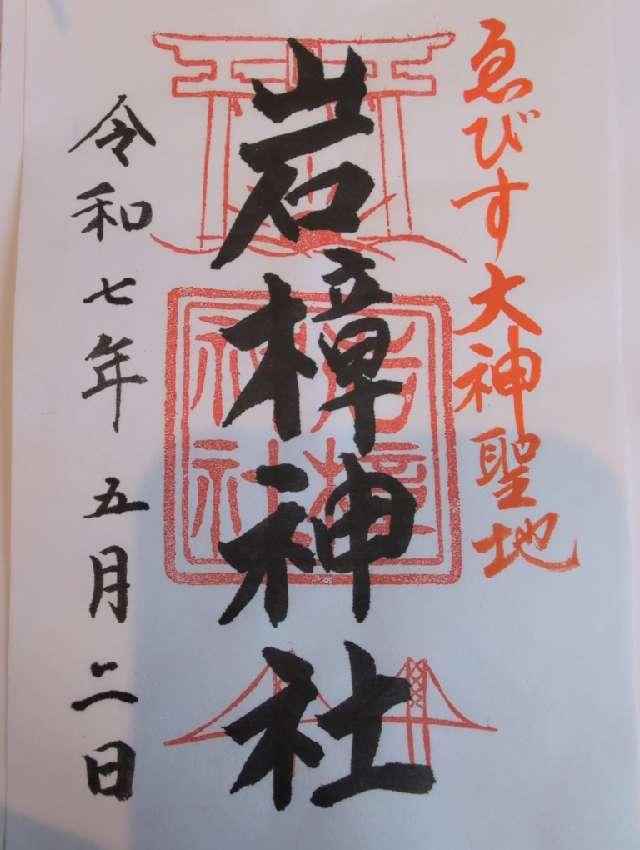 ゑびす大神聖地
岩樟神社
岩樟神社
令和七年五月二日